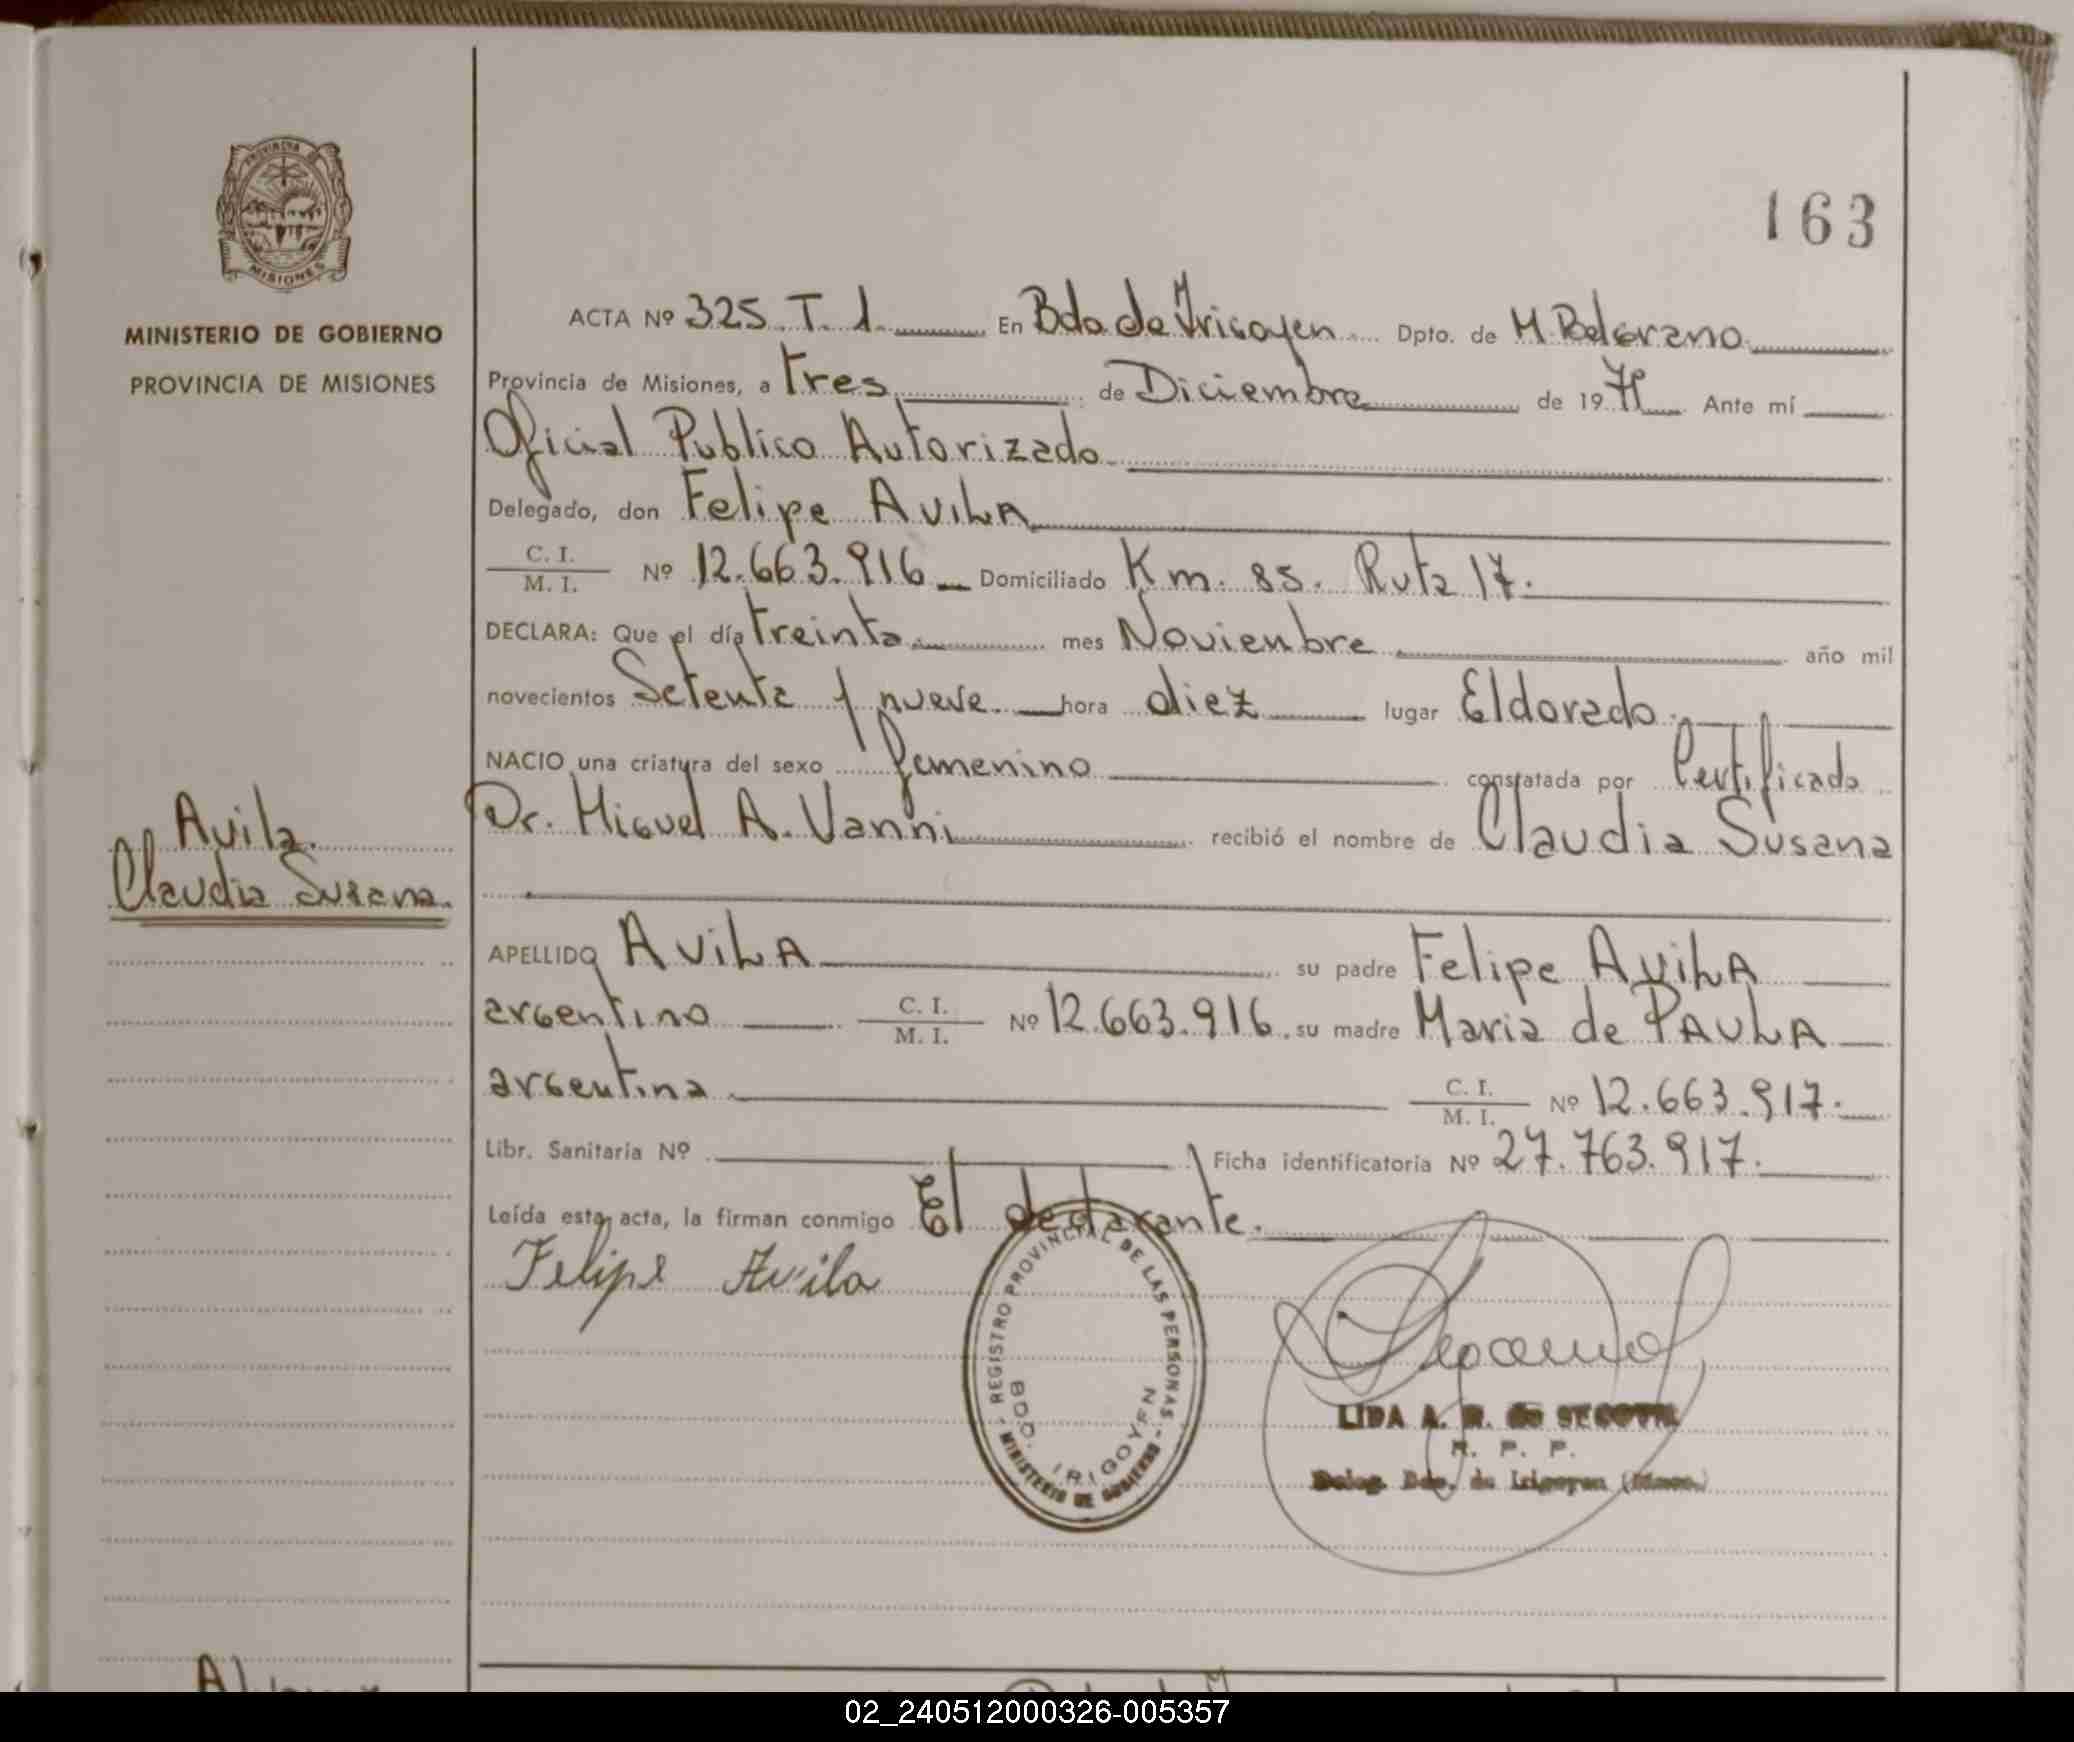 PROVINCIA DE
MISIONES
MINISTERIO DE GOBIERNO
PROVINCIA DE MISIONES
163
ACTA Nº 325. T. 1. En Bdo de Irigoyen Dpto. de M. Belgrano
Provincia de Misiones, a tres de Diciembre de 19 Ante mí
Oficial Publico Autorizado
Delegado, don Felipe AviLA
C. I.
M. I. Nº 12.663.916 Domiciliado Km. 85. Ruta 17.
DECLARA: Que el día treinta mes Novienbre año mil
novecientos Setenta y nueve hora diez lugar Eldorado.
NACIO una criatura del sexo femenino constatada por Certificado
Dr. Miguel A. Vanni recibió el nombre de Claudia Susana
Avila.
Claudia Susana.
APELLIDO AviLA su padre Felipe AviLA
argentino C. I.
M. I. Nº 12.663.916. su madre Maria de PAULA
argentina C. I.
M. I. Nº 12.663.917.
Libr. Sanitaria Nº Ficha identificatoria Nº 27.763.917.
Leída esta acta, la firman conmigo El declarante.
Felipe Avila
REGISTRO PROVINCIAL DE LAS PERSONAS
BDO. IRIGOYEN
MINISTERIO DE GOBIERNO
LIDA A. R. de SEGOVIA
R. P. P.
Deleg. Bdo. de Irigoyen (Mnes.)
02_240512000326-005357